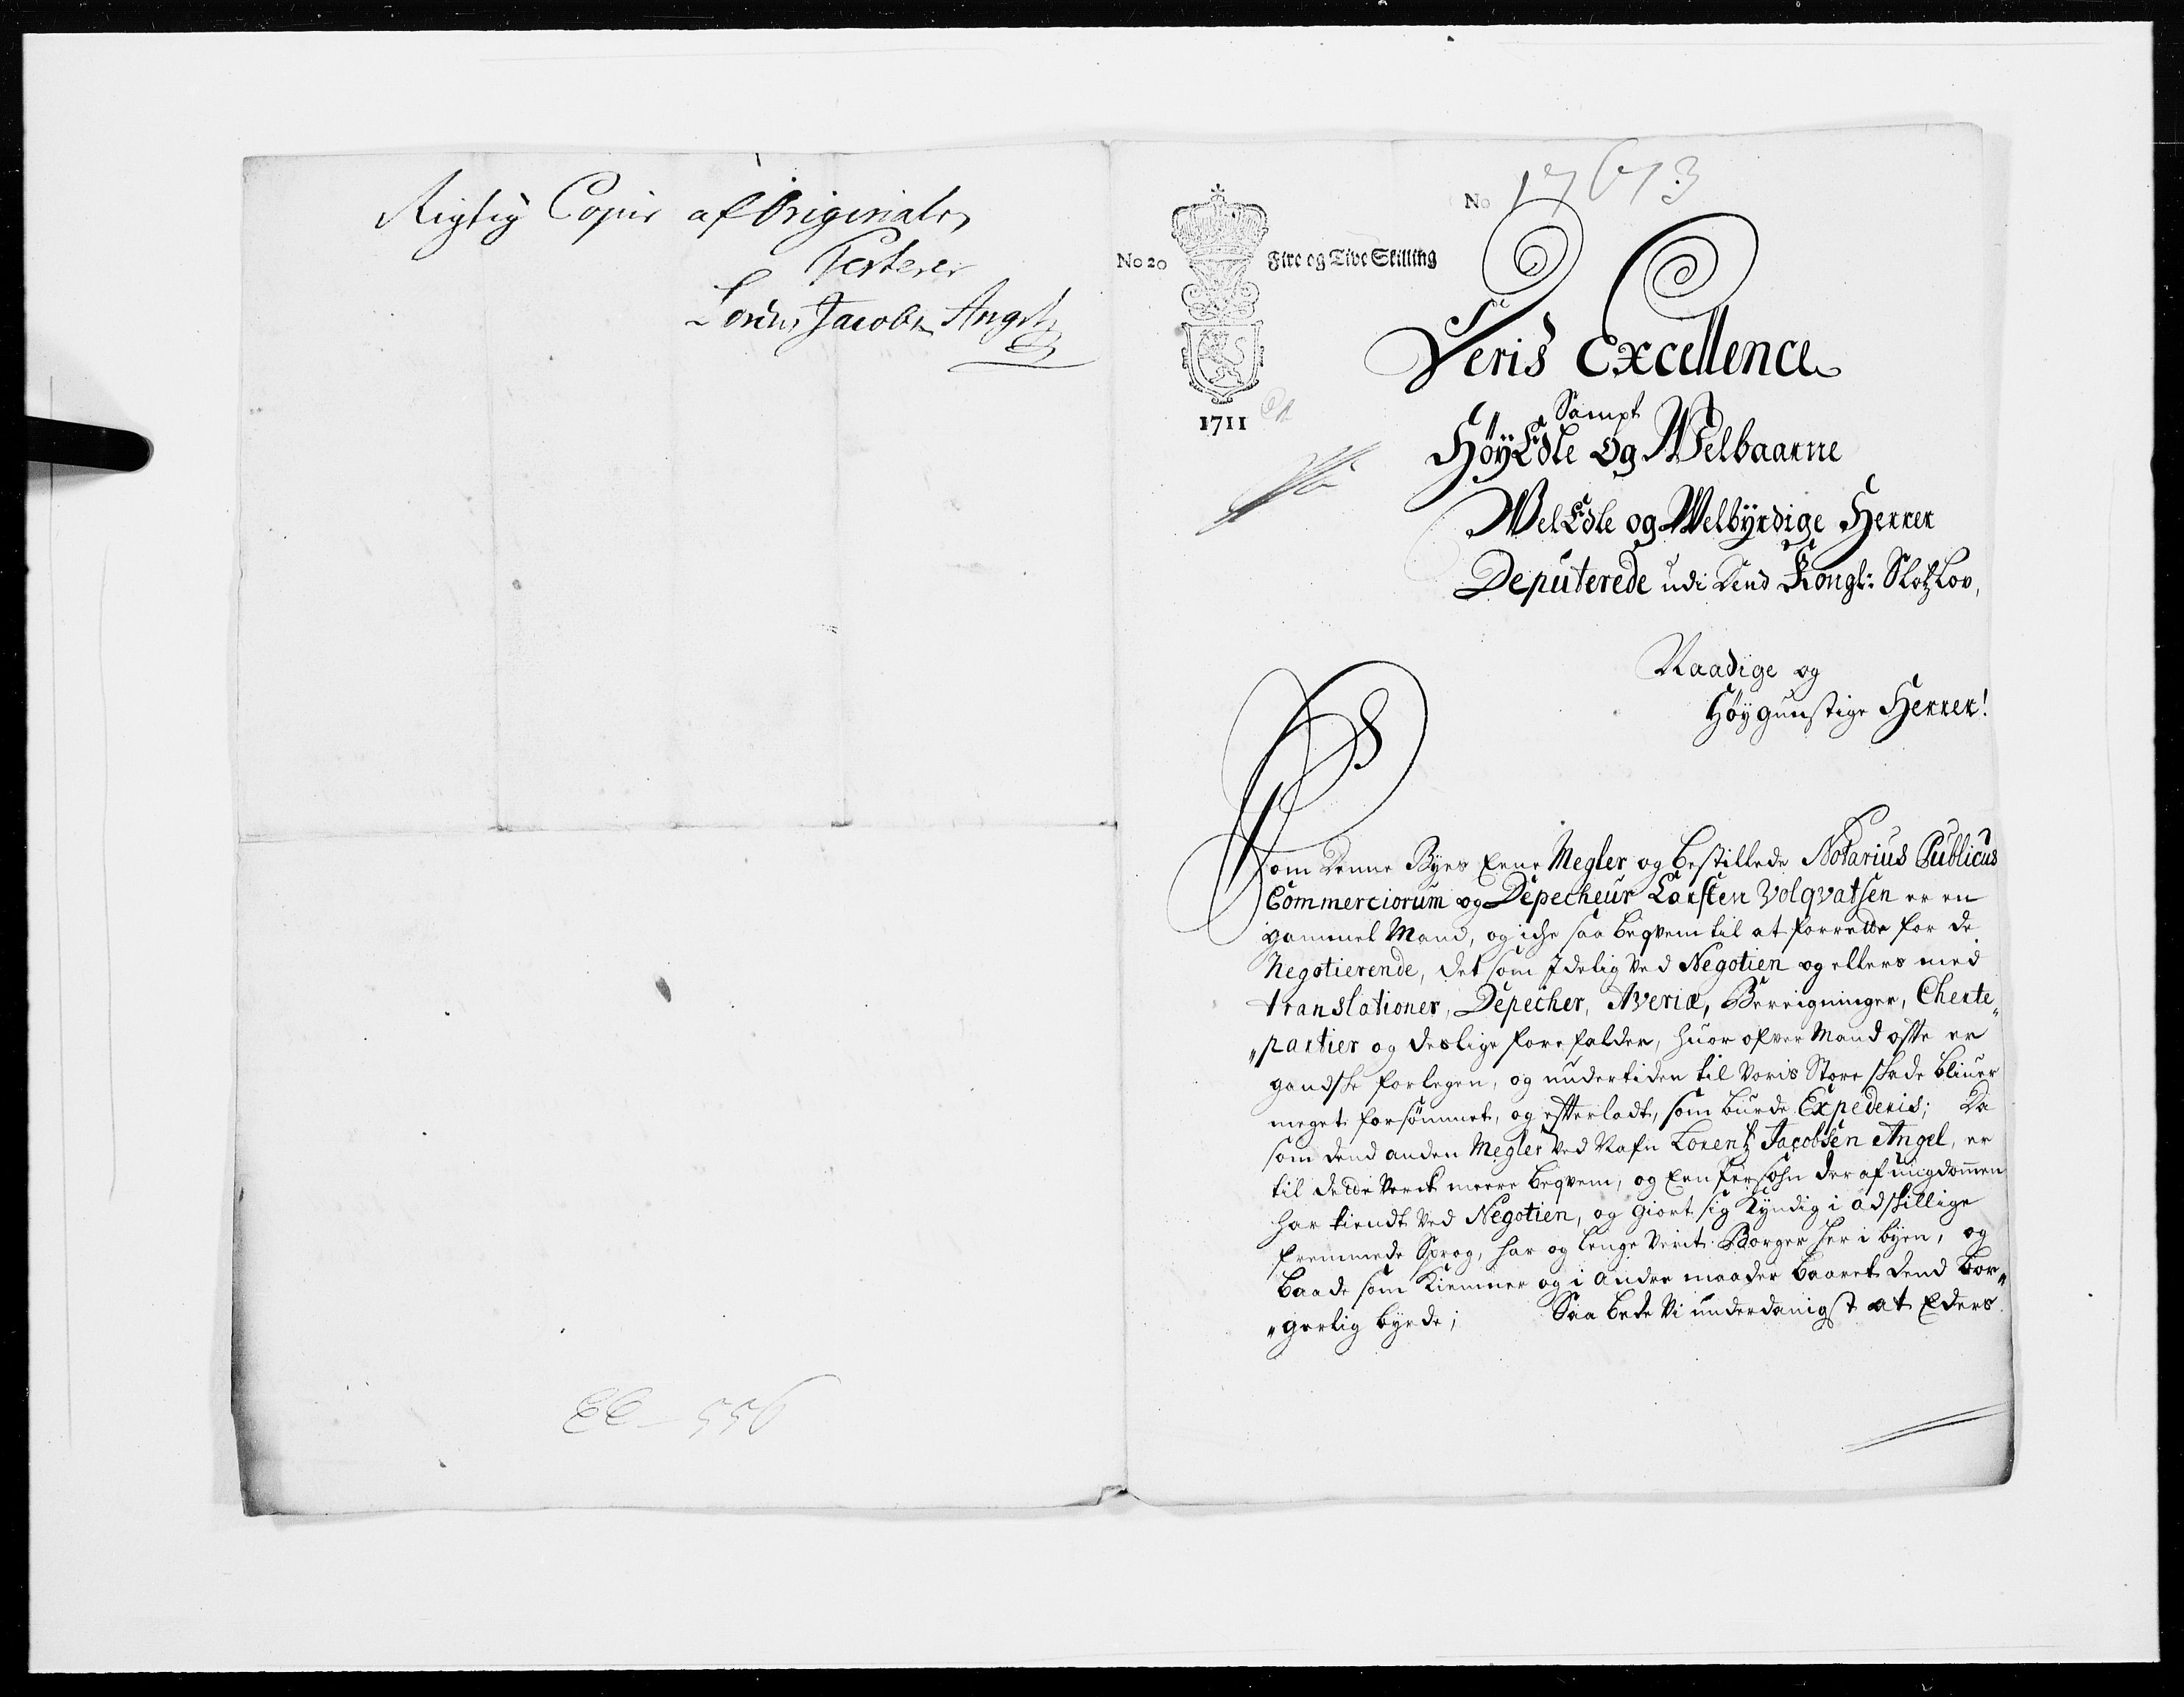 Rigtig Copie af Originalen
Testerer
Lorens Jacobs: Angel
EC - 556
No 17673
No 20 Fire og Tive Skilling
1711
Deris Excellence
Sampt
HøyEdle og Welbaarne
WelEdle og Welbÿrdige Herrer
Deputerede udi dend Kongl: SlotzLov,
Naadige og
Høÿgunstige Herrer!
Som denne Byes Eene Megler og bestillede Notarius Publicus
Commerciorum og Depecheur Carsten Volqvatsen er en
gammel Mand, og iche saa beqvem til at forrette for de
Negotierende, det som Idelig Ved Negotien og ellers med
translationer, Depecher, Averiæ, Berigninger, Cherte„
„partier og deslige forefalder, huor ofver Mand offte er
gandske forlegen, og undertiden til Voris Store skade bliuer
meget forsømmet, og effterladt, som burde Expederis; Da
som dend anden Megler Ved Nafn Lorentz Jacobsen Angel, er
til dette Verck meere beqvem, og Een Persohn der af ungdommen
har tiendt Ved Negotien, og giort sig Kÿndig i adskillige
fremmede Sprog, har og lenge Verit Borger her i byen, og
baade som Kiemner og i andre maader baaret dend bor„
„gerlig byrde; Saa bede Vi underdanigst at Eders